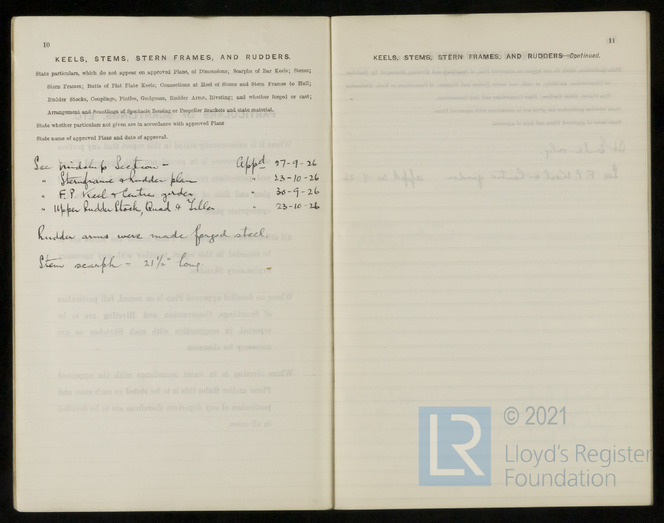 10
KEELS, STEMS, STERN FRAMES, AND RUDDERS.
State particulars, which do not appear on approved Plans, of Dimensions; Scarphs of Bar Keels; Stems;
Stern Frames; Butts of Flat Plate Keels; Connections at Heel of Stems and Stern Frames to Hull;
Rudder Stocks, Couplings, Pintles, Gudgeons, Rudder Arms, Riveting; and whether forged or cast;
Arrangement and Scantlings of Spectacle Bossing or Propeller Brackets and state material.
State whether particulars not given are in accordance with approved Plans
State name of approved Plans and date of approval.
See Midship Section - Appd 27-9-26
" Sternframe & Rudder plan " 23-10-26
" F.P. Keel & Centre girder 30-9-26
" Upper Rudder Stock, Quad & Tiller " 23-10-26
Rudder arms were made forged steel.
Stem scarph - 21½" long.
11
KEELS, STEMS, STERN FRAMES, AND RUDDERS—Continued.
LR
© 2021
Lloyd's Register
Foundation